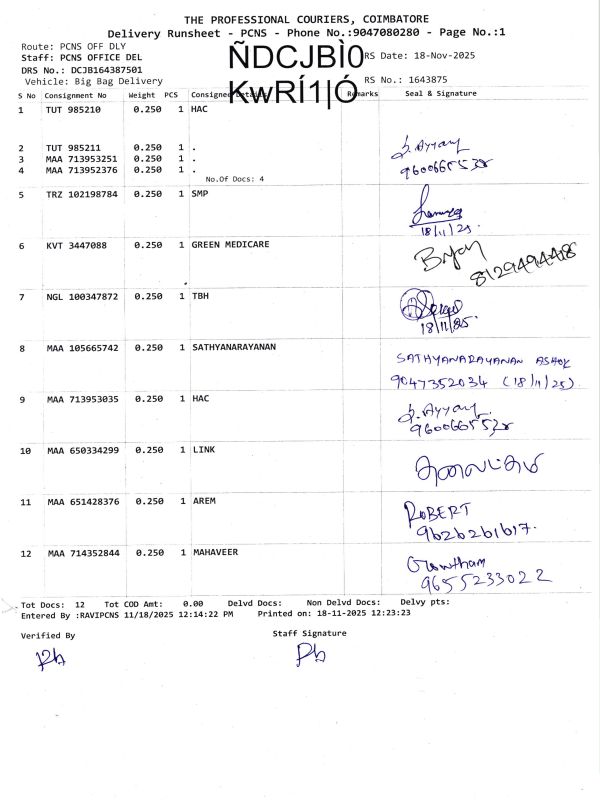 THE PROFESSIONAL COURIERS, COIMBATORE
Delivery Runsheet - PCNS - Phone No.:9047080280 - Page No.:1
Route: PCNS OFF DLY
Staff: PCNS OFFICE DEL
ÑDCJBÌ0
RS Date: 18-Nov-2025
DRS No.: DCJB164387501
Vehicle: Big Bag Delivery
KwRÍ1|Ó
RS No.: 1643875
S No Consignment No Weight PCS Consignee Details Remarks Seal & Signature
1 TUT 985210 0.250 1 HAC
2 TUT 985211 0.250 1 .
3 MAA 713953251 0.250 1 .
4 MAA 713952376 0.250 1 .
No.Of Docs: 4
5 TRZ 102198784 0.250 1 SMP
18/11/25.
6 KVT 3447088 0.250 1 GREEN MEDICARE
8129494418
7 NGL 100347872 0.250 1 TBH
18/11/25.
8 MAA 105665742 0.250 1 SATHYANARAYANAN
SATHYANARAYANAN ASHOK
9047352034 (18/11/25).
9 MAA 713953035 0.250 1 HAC
10 MAA 650334299 0.250 1 LINK
11 MAA 651428376 0.250 1 AREM
ROBERT
9626261617.
12 MAA 714352844 0.250 1 MAHAVEER
Gowtham
9655233022
Tot Docs: 12 Tot COD Amt: 0.00 Delvd Docs: Non Delvd Docs: Delvy pts:
Entered By :RAVIPCNS 11/18/2025 12:14:22 PM Printed on: 18-11-2025 12:23:23
Verified By Staff Signature